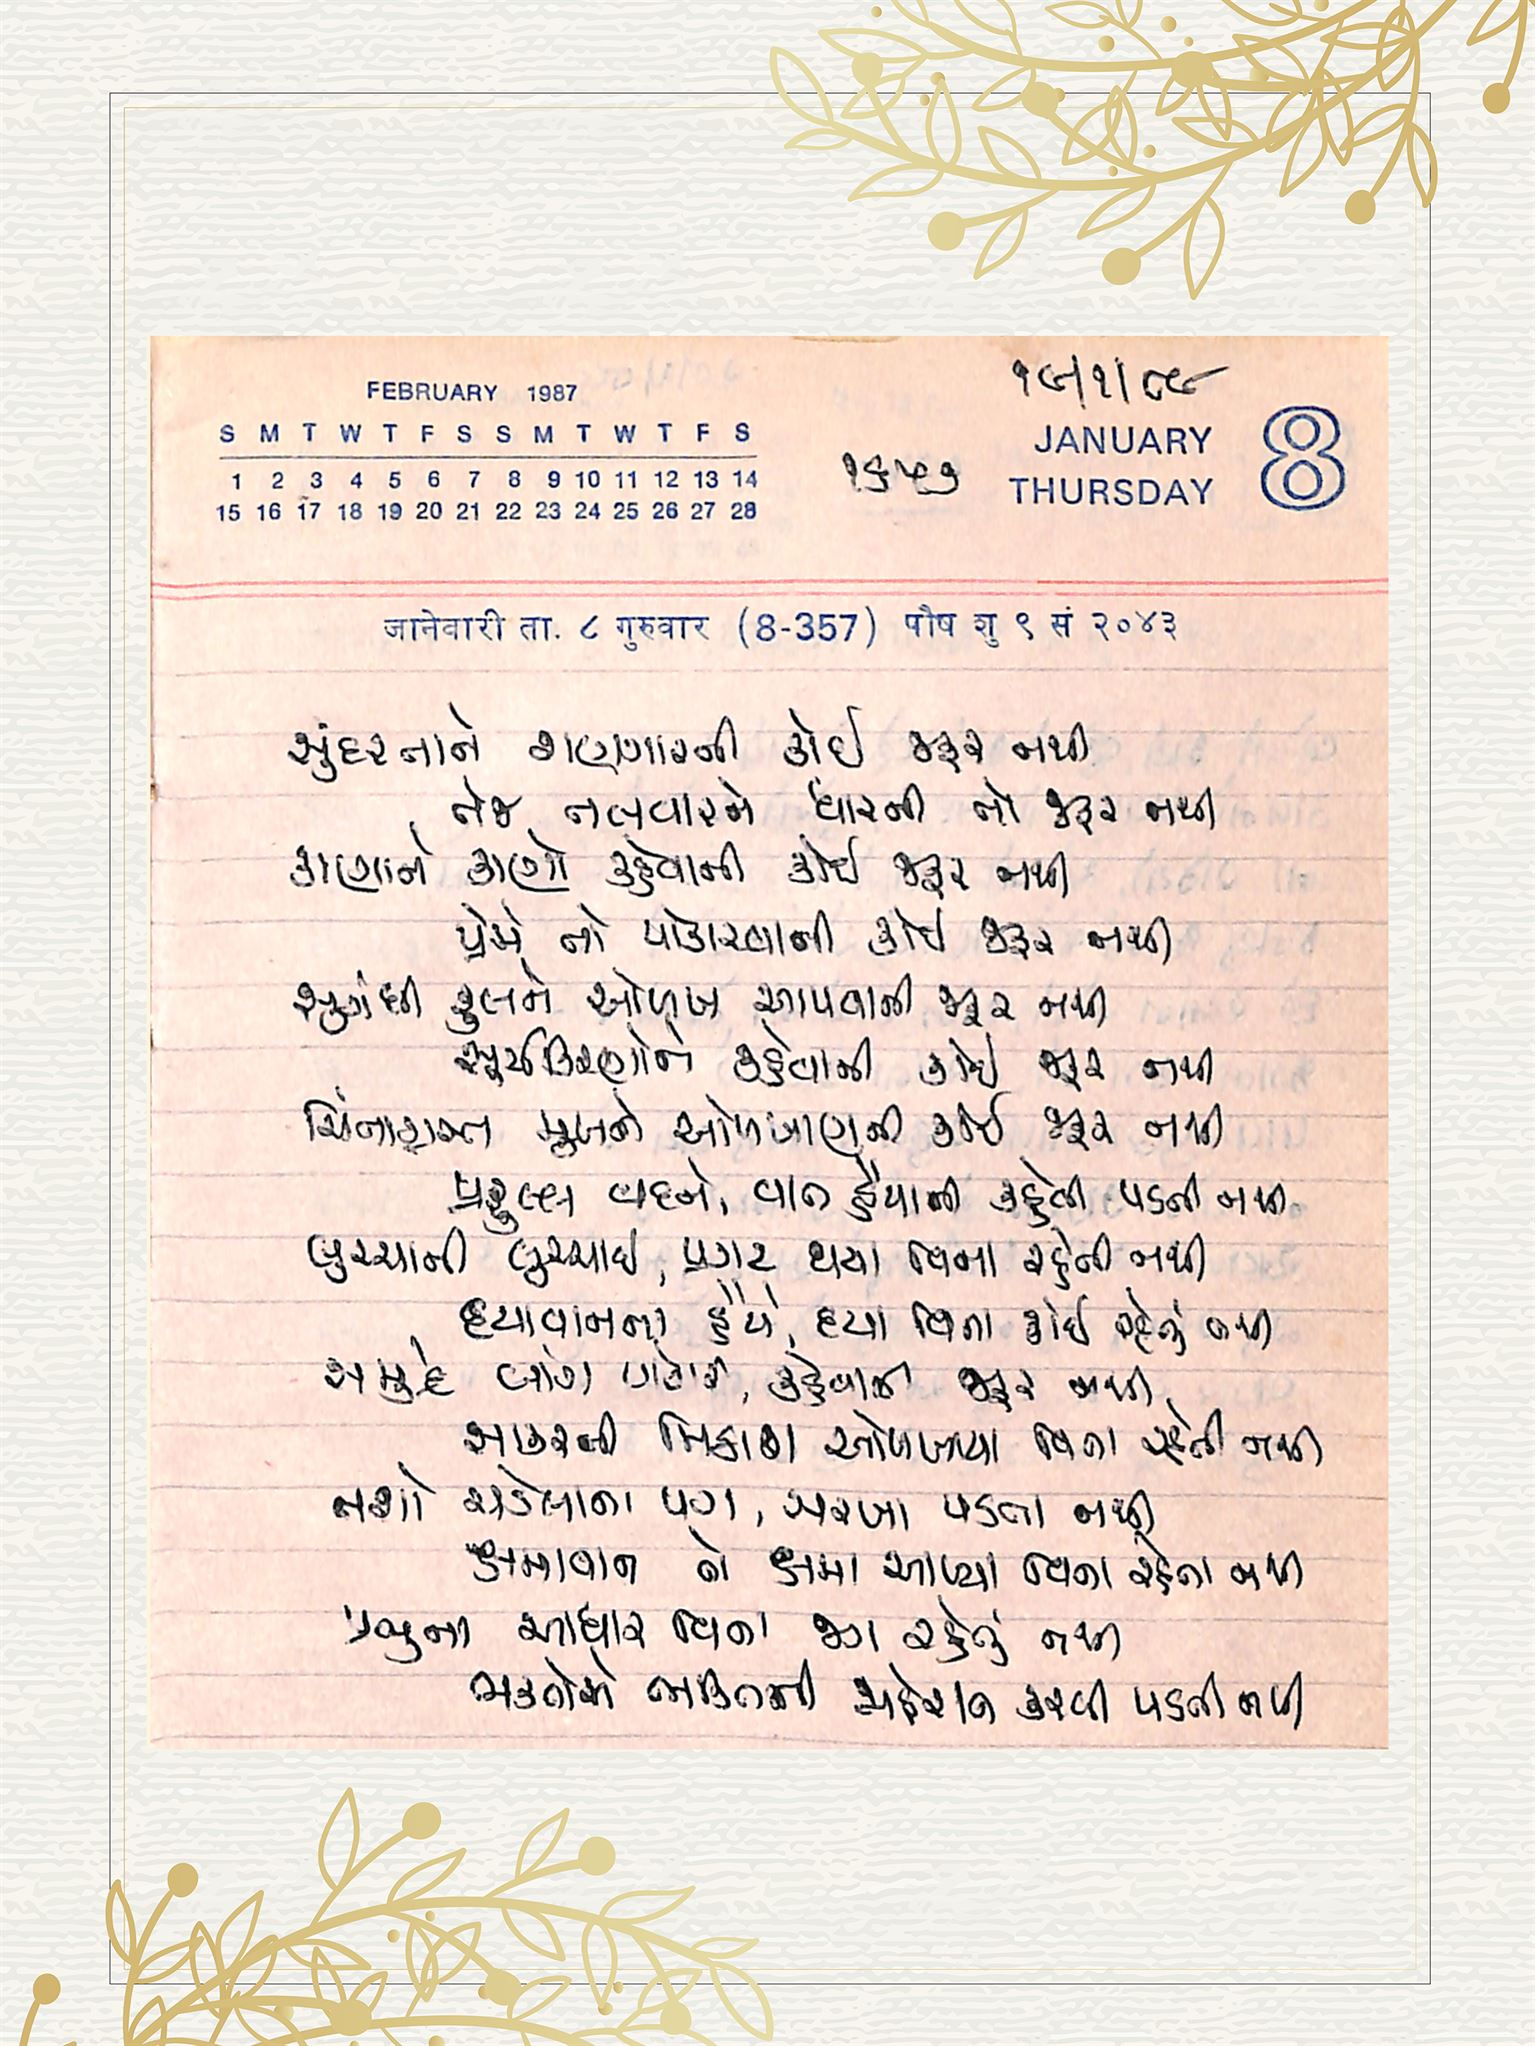 FEBRUARY 1987
S M T W T F S S M T W T F S
1 2 3 4 5 6 7 8 9 10 11 12 13 14
15 16 17 18 19 20 21 22 23 24 25 26 27 28
JANUARY
THURSDAY
8
जानेवारी ता. ८ गुरुवार (8-357) पौष शु ९ सं २०४३
સુંદરતાને શણગારની કોઈ જરૂર નથી
તેજ તલવારને ધારની તો જરૂર નથી
કાણાને કાણો કહેવાની કોઈ જરૂર નથી
પ્રેમે તો પોકારવાની કોઈ જરૂર નથી
સુગંધી ફુલને ઓળખ આપવાની જરૂર નથી
સૂર્યકિરણોને કહેવાની કોઈ જરૂર નથી
ચિંતાગ્રસ્ત મુખને ઓળખાણની કોઈ જરૂર નથી
પ્રફુલ્લ વદને, વાત હૈયાની કહેવી પડતી નથી
લુચ્ચાની લુચ્ચાઈ, પ્રગટ થયા વિના રહેતી નથી
દયાવાનના હૈયે, દયા વિના કોઈ રહેતું નથી
સમુદ્રે ખારાં કહેવાની જરૂર નથી
સાકરની મિઠાશ ઓળખાયા વિના રહેતી નથી
નશો ચડેલાના પગ, સરખા પડતા નથી
ક્ષમાવાન તો ક્ષમા આપ્યા વિના રહેતા નથી
પ્રભુના આધાર વિના જગ રહેતું નથી
ભક્તોએ ભક્તિની જાહેરાત કરવી પડતી નથી